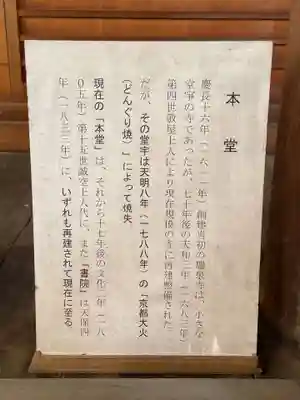 本堂
慶長十六年(一六一一年)創建当初の瑞泉寺は、小さな
堂宇の寺であったが、七十年後の天和三年(一六八三年)
第四世教屋上人により現在規模の寺に再建整備された。
だが、その堂宇は天明八年(一七八八年)の「京都大火
(どんぐり焼)」によって焼失。
現在の「本堂」は、それから十七年後の文化二年(一八
〇五年)第十五世誠空上人代に、また「書院」は天保四
年(一八三三年)に、いずれも再建されて現在に至る。